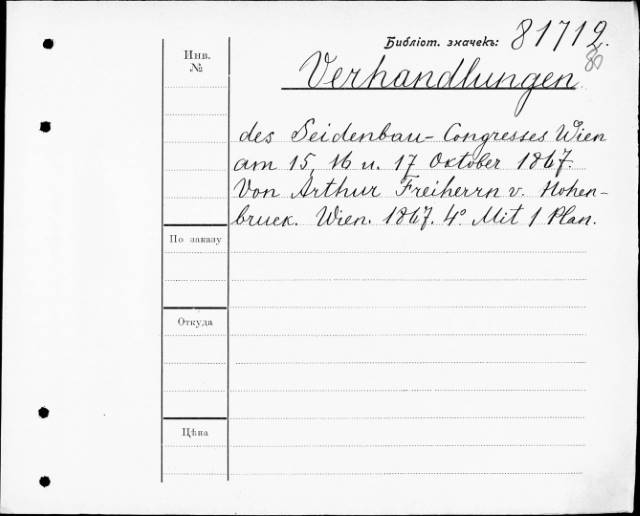 Библіот. значекъ: 81712.
80
Инв.
№
Verhandlungen
des Seidenbau-Congresses Wien
am 15, 16 u. 17 Oktober 1867.
Von Arthur Freiherrn v. Hohen-
bruck. Wien. 1867. 4° Mit 1 Plan.
По заказу
Откуда
Цѣна